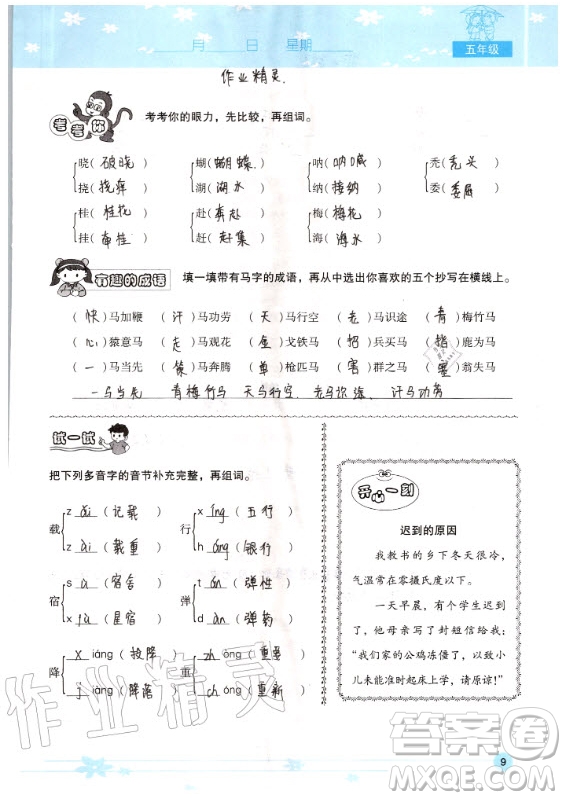 月 日 星期
五年级
作业精灵.
考考你 考考你的眼力，先比较，再组词。
晓（破晓） 蝴（蝴蝶） 呐（呐喊） 秃（秃头）
挠（挠痒） 湖（湖水） 纳（接纳） 委（委屈）
桂（桂花） 赴（奔赴） 梅（梅花）
挂（牵挂） 赶（赶集） 海（海水）
有趣的成语 填一填带有马字的成语，再从中选出你喜欢的五个抄写在横线上。
（快）马加鞭 （汗）马功劳 （天）马行空 （老）马识途 （青）梅竹马
（心）猿意马 （走）马观花 （金）戈铁马 （招）兵买马 （指）鹿为马
（一）马当先 （策）马奔腾 （单）枪匹马 （害）群之马 （塞）翁失马
一马当先 青梅竹马 天马行空 老马识途 汗马功劳
试一试
把下列多音字的音节补充完整，再组词。
载 z ǎi （记载） 行 x íng （五行）
z ài （载重） h áng （银行）
宿 s ù （宿舍） 弹 t án （弹性）
x iù （星宿） d àn （弹药）
降 x iáng （投降） 重 zh òng （重要）
j iàng （降落） ch óng （重新）
开心一刻
迟到的原因
我教书的乡下冬天很冷，
气温常在零摄氏度以下。
一天早晨，有个学生迟到
了，他妈妈写了封短信给我：
“我们家的公鸡冻僵了，以致小
儿未能准时起床上学，请原谅！”
作业精灵
答案圈
MXQE.COM
9